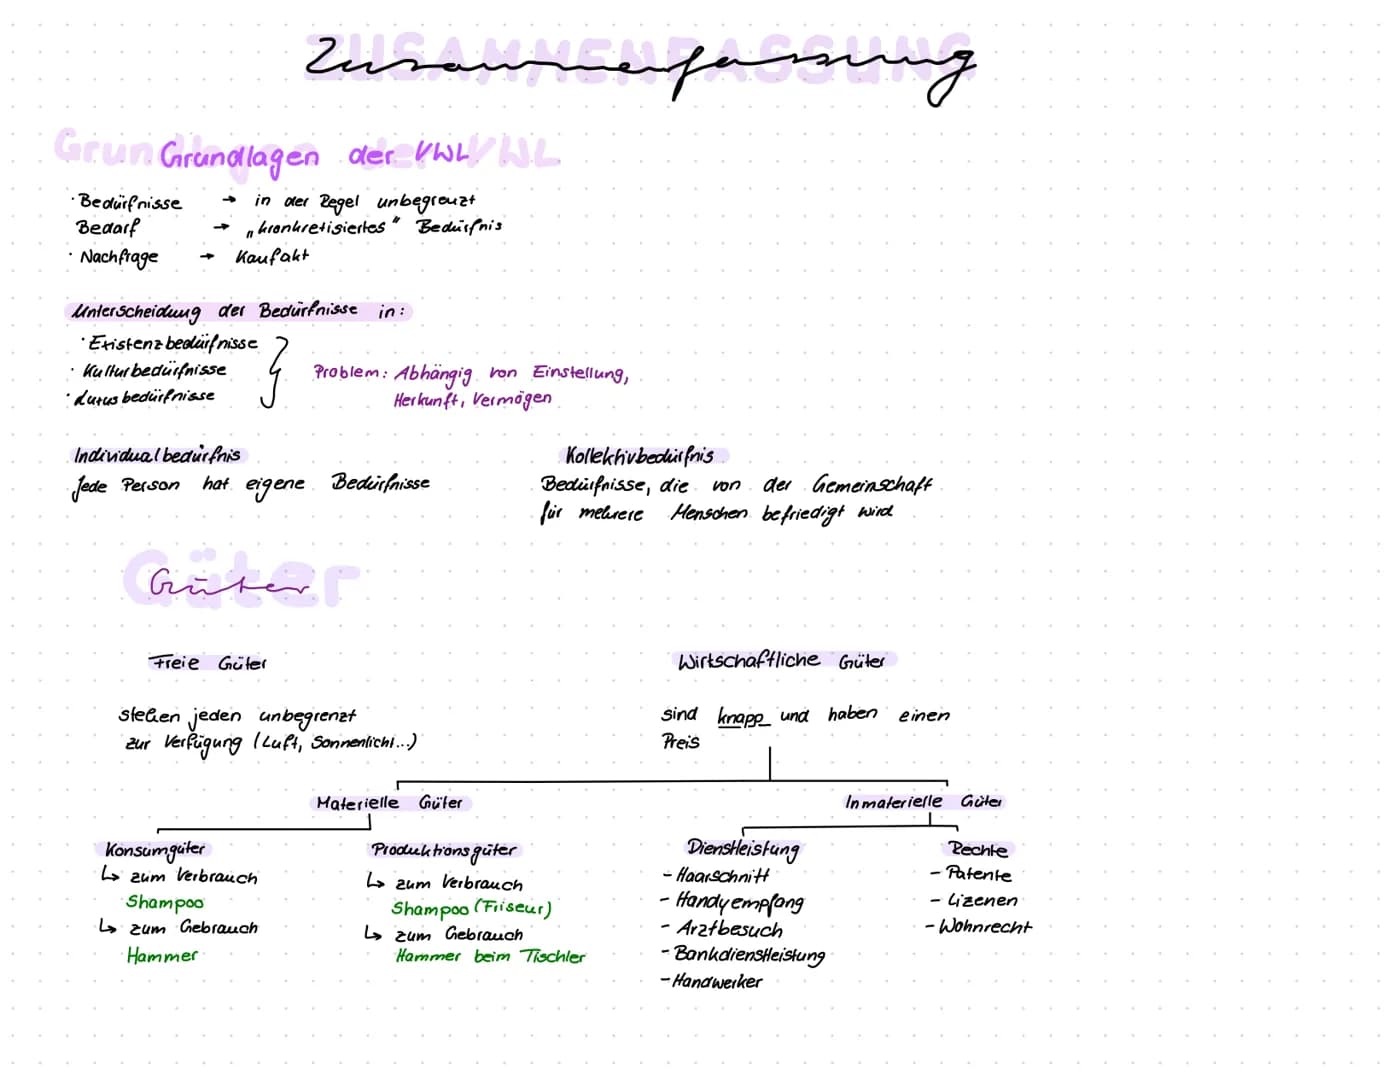 Zusammenfassung
Grundlagen der VWL
· Bedürfnisse → in der Regel unbegrenzt
Bedarf → „konkretisiertes" Bedürfnis
· Nachfrage → Kaufakt
Unterscheidung der Bedürfnisse in:
· Existenzbedürfnisse
· Kulturbedürfnisse
· Luxusbedürfnisse
Problem: Abhängig von Einstellung,
Herkunft, Vermögen
Individualbedürfnis
Jede Person hat eigene Bedürfnisse
Kollektivbedürfnis
Bedürfnisse, die von der Gemeinschaft
für mehrere Menschen befriedigt wird
Güter
Freie Güter
stehen jeden unbegrenzt
zur Verfügung (Luft, Sonnenlicht...)
Wirtschaftliche Güter
sind knapp und haben einen
Preis
Materielle Güter
Inmaterielle Güter
Konsumgüter
↳ zum Verbrauch
Shampoo
↳ zum Gebrauch
Hammer
Produktionsgüter
↳ zum Verbrauch
Shampoo (Friseur)
↳ zum Gebrauch
Hammer beim Tischler
Dienstleistung
- Haarschnitt
- Handyempfang
- Arztbesuch
- Bankdienstleistung
- Handwerker
Rechte
- Patente
- Lizenen
- Wohnrecht